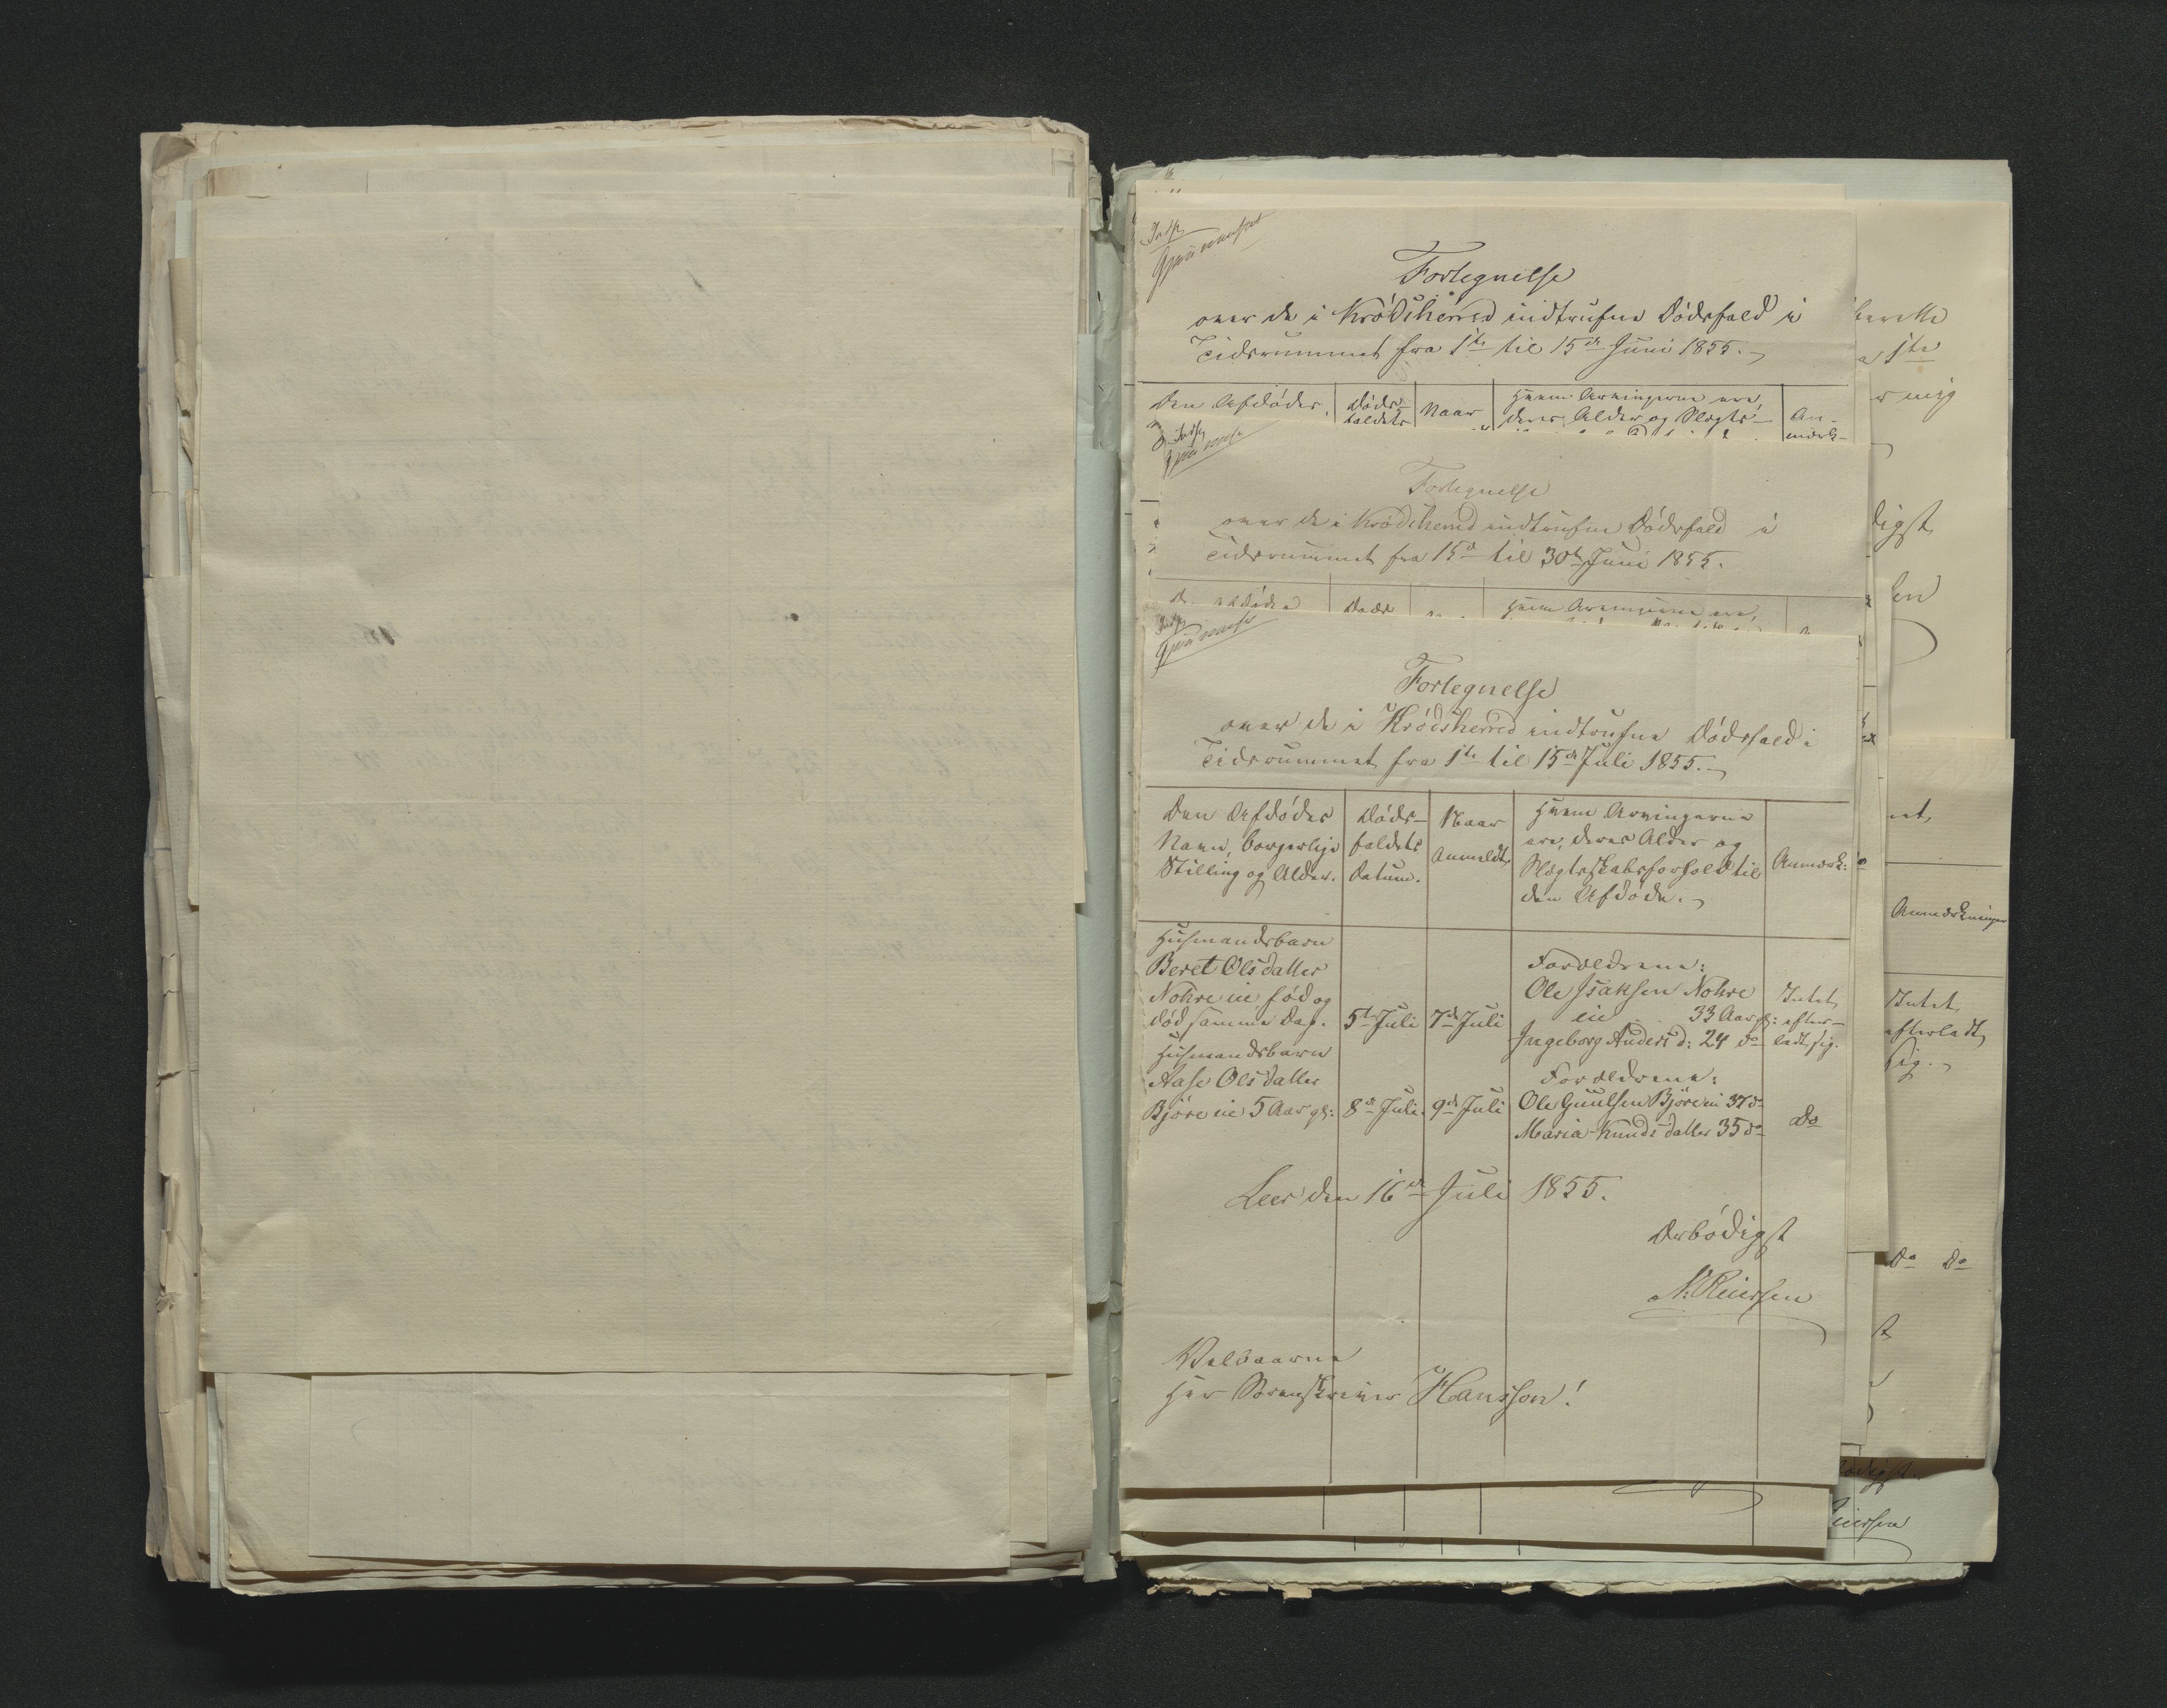 Fortegnelse
over de i Krødsherred indtrufne Dødsfald i
Tidsrummet fra 1ste til 15de Juni 1855.
Den Afdødes
Døds-
faldets
Naar
Hvem Arvingerne ere,
deres Alder og Slægts-
An-
mærk-
Fortegnelse
over de i Krødsherred indtrufne Dødsfald i
Tidsrummet fra 15de til 30te Juni 1855.
Hvem Arvingerne ere,
Fortegnelse
over de i Krødsherred indtrufne Dødsfald i
Tidsrummet fra 1ste til 15de Juli 1855.
Den Afdødes
Navn, borgerlige
Stilling og Alder.
Døds-
faldets
Datum.
Naar
Anmeldt,
Hvem Arvingerne
ere, deres Alder og
Slægtskabsforhold til
den Afdøde.
Anmærk:
Husmandsbarn
Beret Olsdatter
Nohre eie fød og
død samme Dag.
5te Juli
7de Juli
Forældrene:
Ole Isaksen Nohre
eie 33 Aar g:
Ingeborg Andersd: 24 do
Intet
efter-
ladt sig.
Husmandsbarn
Aase Olsdatter
Bjøre eie 5 Aar gl:
8de Juli.
9de Juli
Forældrene:
Ole Guulsen Bjøre eie 37 do
Maria Knudsdatter 35 do
do
Leer den 16de Juli 1855.
Ærbødigst
N. Reiersen
Velbaarne
Herr Sorenskriver Hansson!
1ste
mig
Anmærkninger
Intet
efterladt
sig.
do do